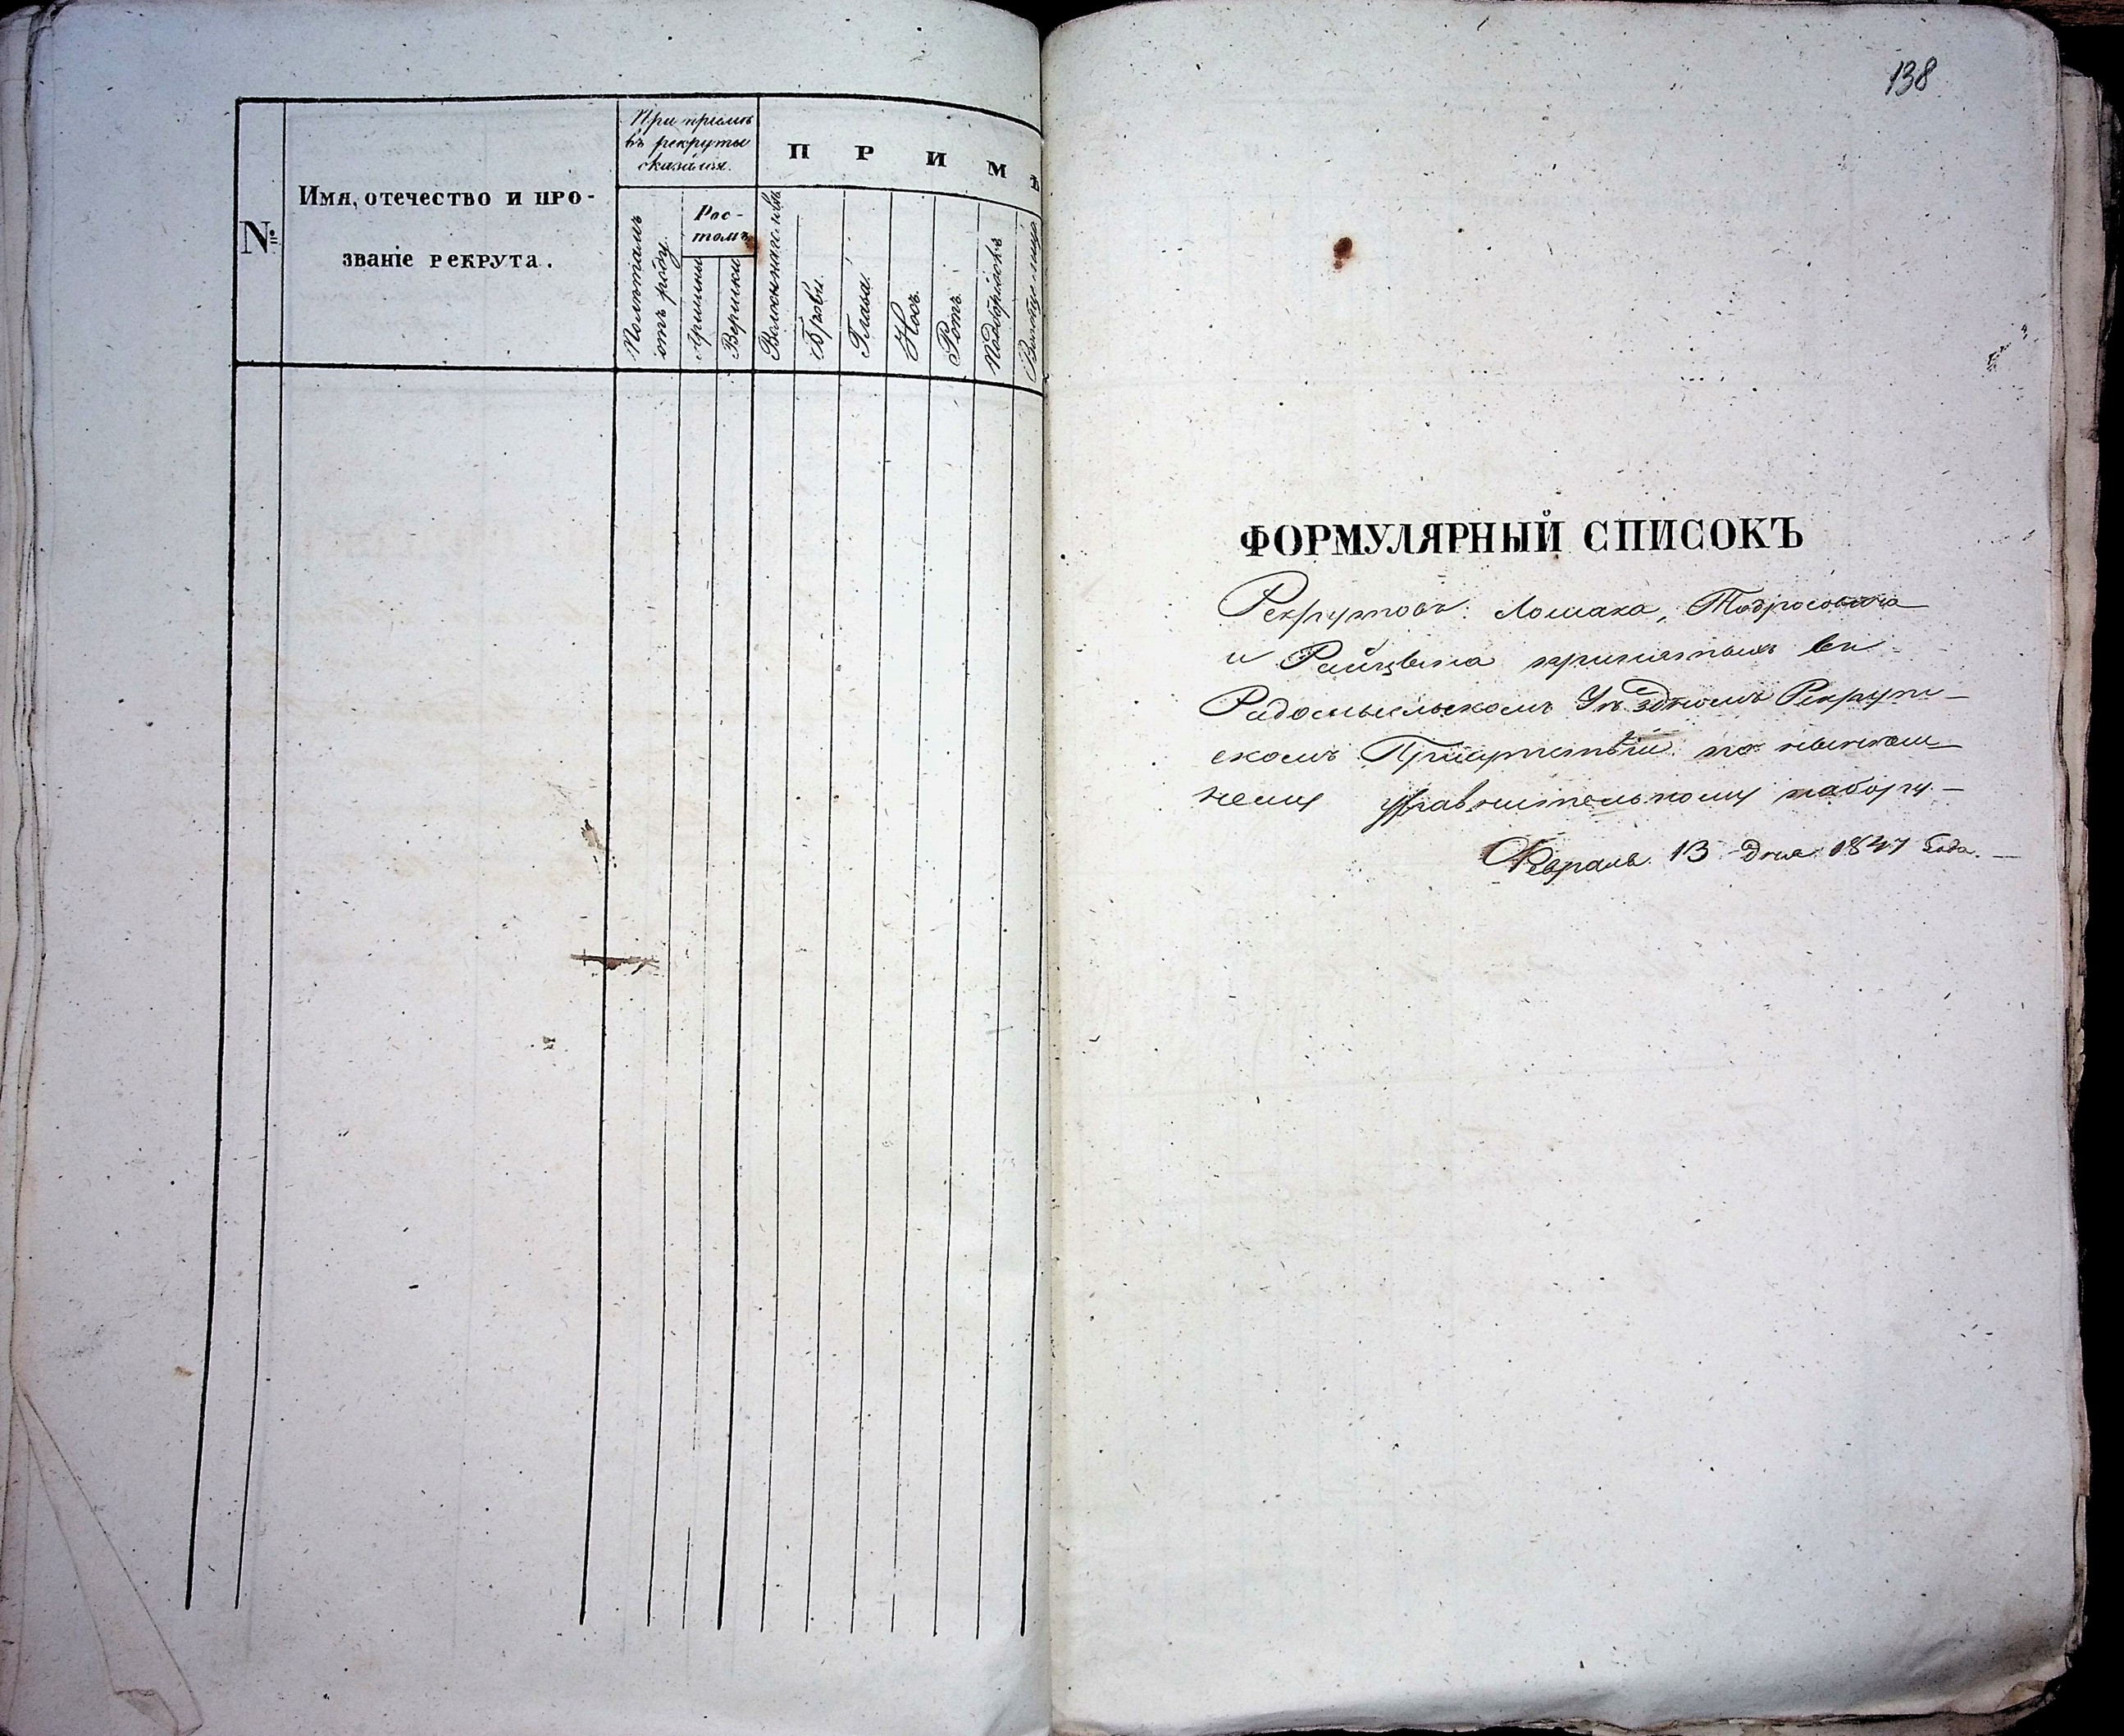 №
Имя, отечество и про-
званіе рекрута.
При пріемѣ
въ рекруты
сказался.
Полѣтамъ
отъ роду.
Рос-
томъ
Аршины
Вершки
П Р И М Ѣ
Брови.
Глаза.
Носъ.
Ротъ.
Подбородокъ
138
ФОРМУЛЯРНЫЙ СПИСОКЪ
Рекрутовъ: Лошака, Тодросовича
и принятыхъ въ
Радомысльскомъ Уѣздномъ Рекрут-
скомъ Присутствіи по нынеш-
нему уравнительному набору.—
Февраля 13 дня 1847 Года.—